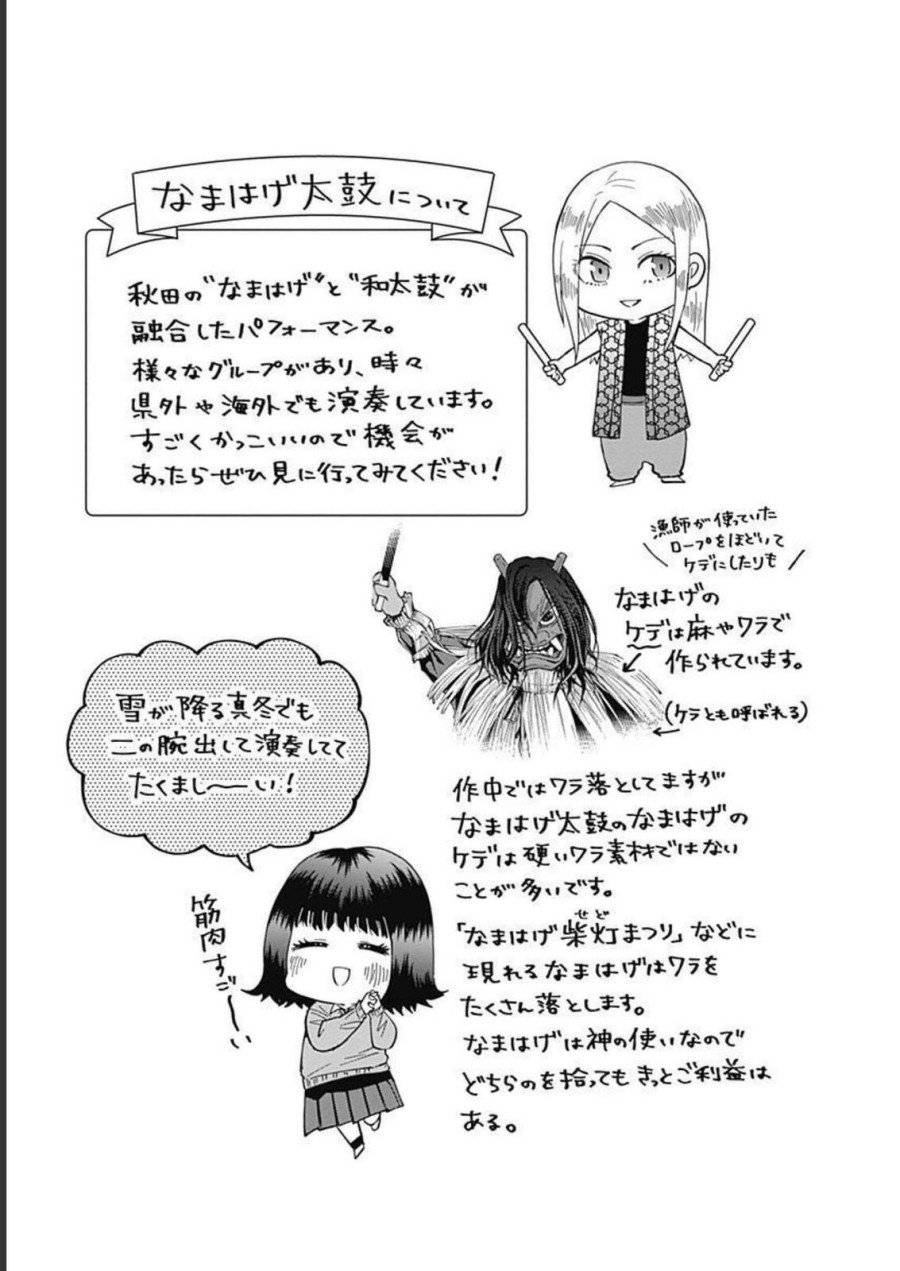 なまはげ太鼓について
秋田の"なまはげ"と"和太鼓"が
融合したパフォーマンス。
様々なグループがあり、時々
県外や海外でも演奏しています。
すごくかっこいいので機会が
あったらぜひ見に行ってみてください!
漁師が使っていた
ロープをほどいて
ケデにしたりも
なまはげの
ケデは麻やワラで
作られています。
(ケラとも呼ばれる)
雪が降る真冬でも
二の腕出して演奏してて
たくまし〜〜い!
筋肉すご〜い
作中ではワラ落としてますが
なまはげ太鼓のなまはげの
ケデは硬いワラ素材ではない
ことが多いです。
「なまはげ柴灯まつり」などに
せど
現れるなまはげはワラを
たくさん落とします。
なまはげは神の使いなので
どちらのを拾ってもきっとご利益は
ある。